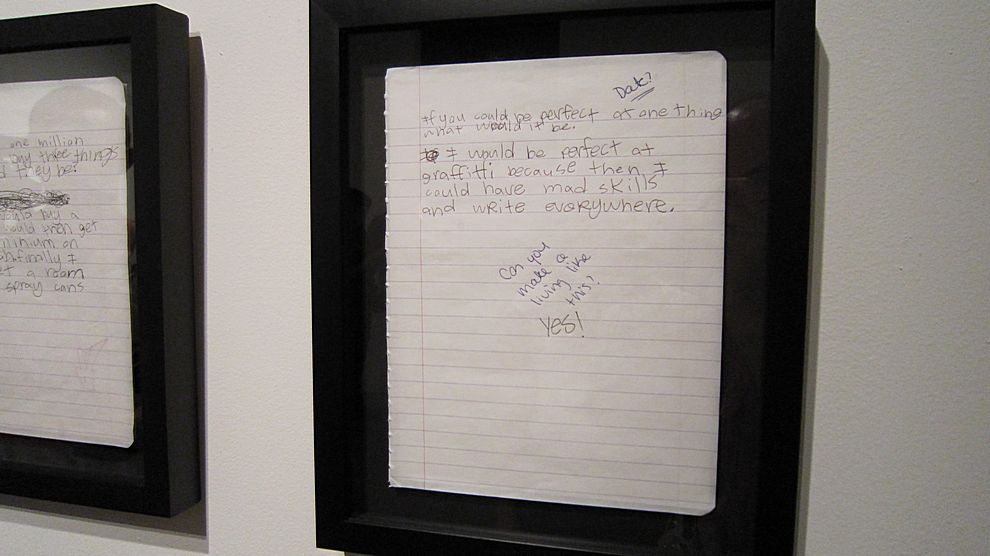 one million
any three things
d they be?
would buy a
would then get
minium on
finally I
et a room
spray cans
Date?
If you could be perfect at one thing
what would it be.
I would be perfect at
graffitti because then I
could have mad skills
and write everywhere.
can you
make a
living like
this?
Yes!